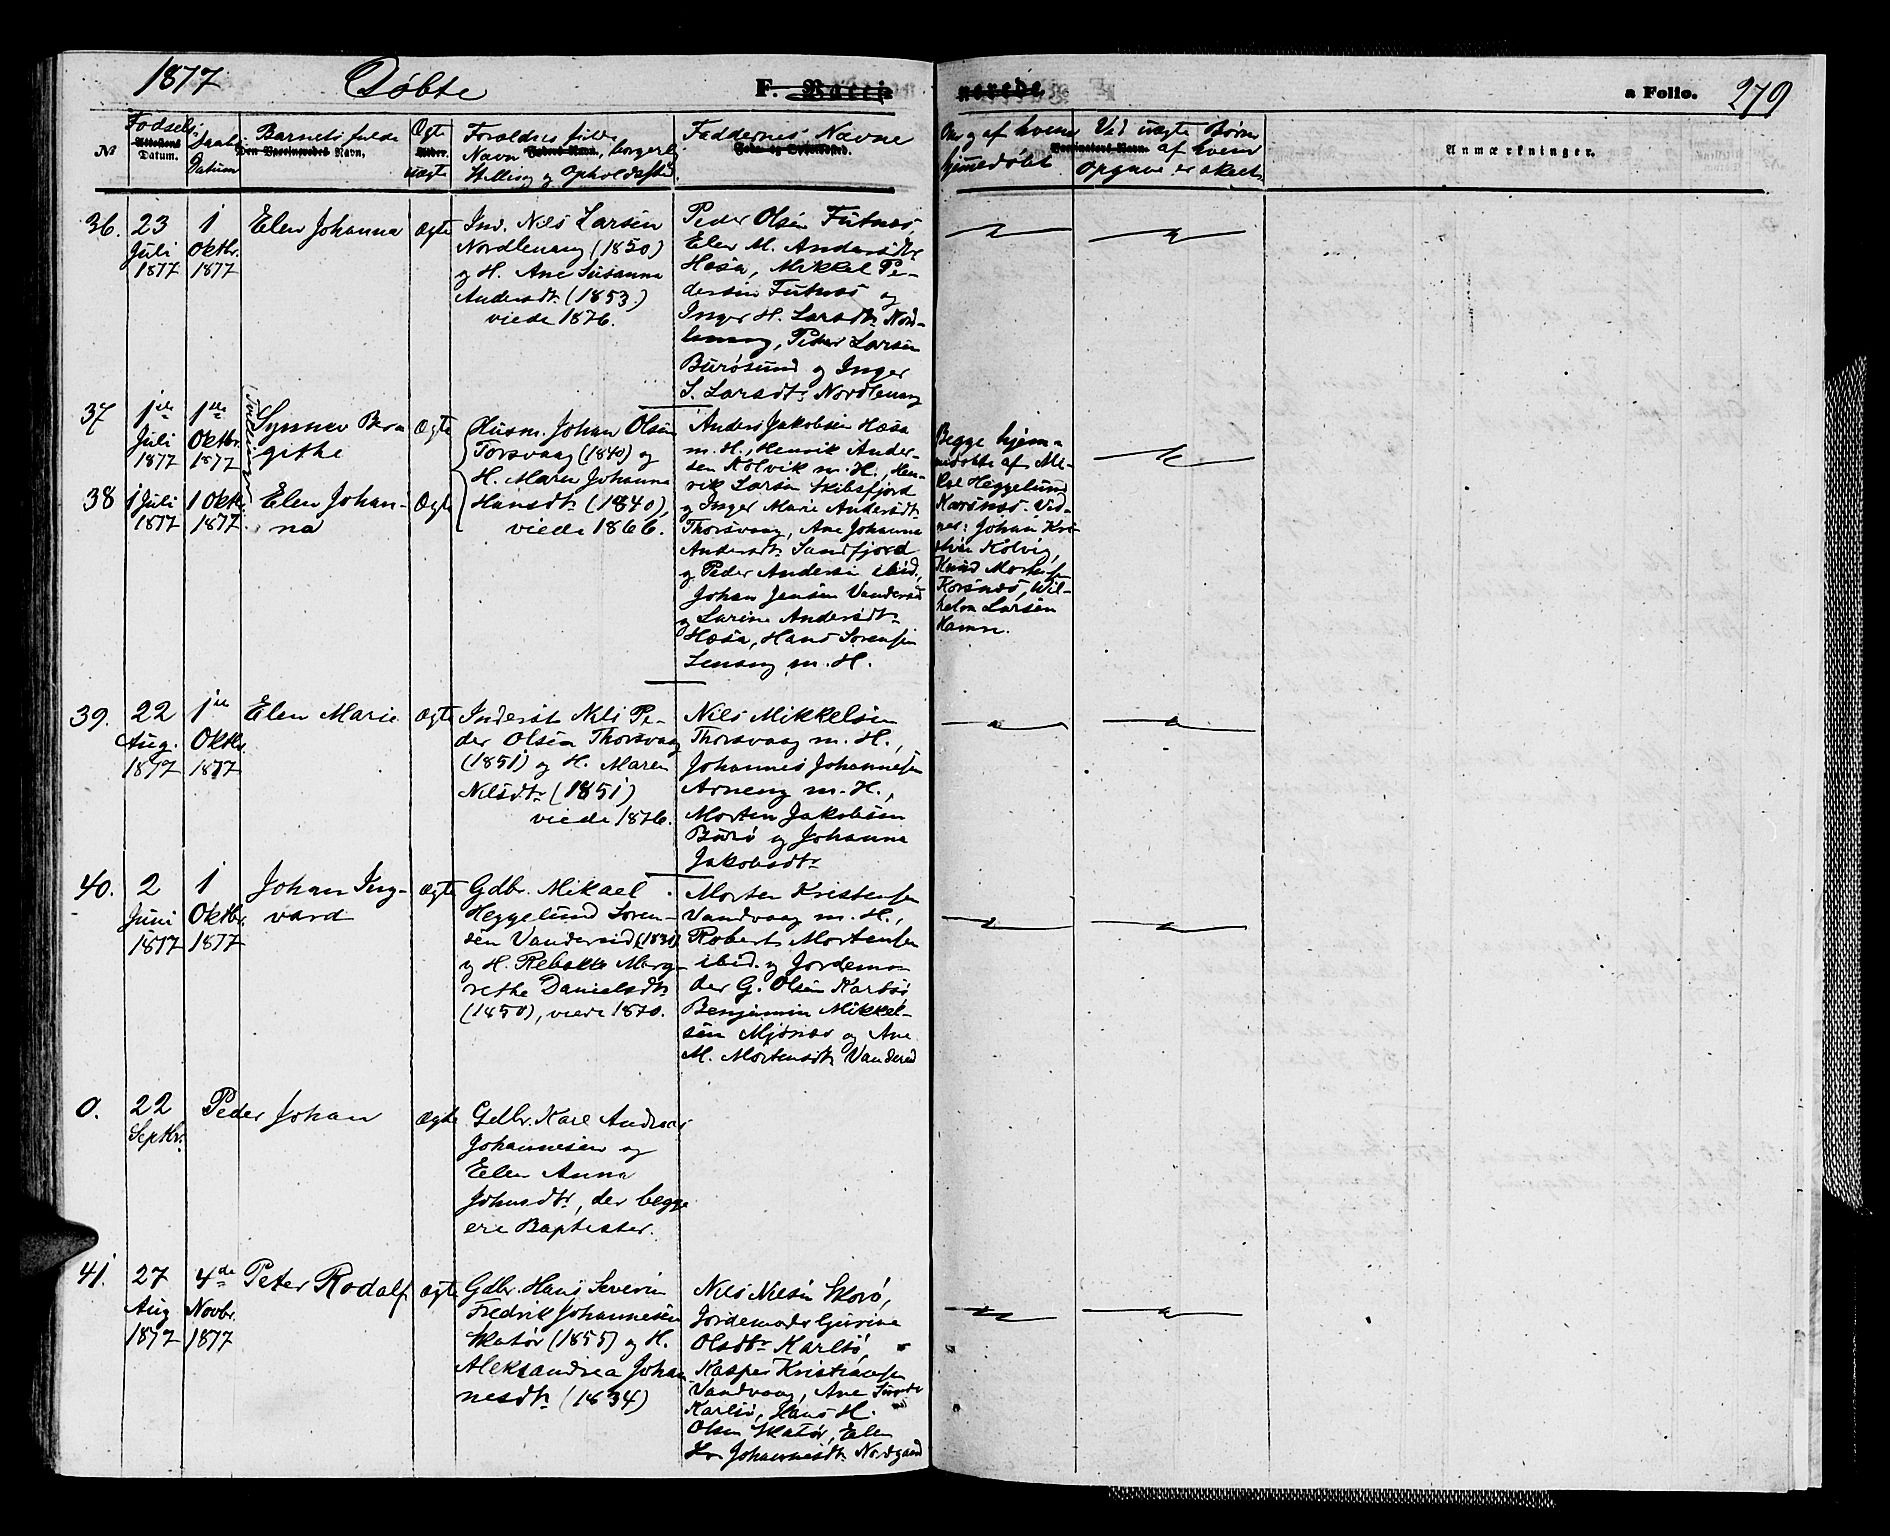 1877 Døbte F. a Folio. 279
No Fødsels Datum. Daabs Datum Barnets fulde Navn, Ægte Uægte Forældres fulde Navn, borgerlig Stilling og Opholdssted. Faddernes Navne Om og af hvem hjemmedøbt Ved uægte Børn af hvem Opgave er skeet. Anmærkninger.
36. 23 Juli 1877 1 Oktbr. 1877 Elen Johanna Ægte
Ind. Nils Larsen
Nordlenang (1850)
og H. Ane Susanna
Andersdtr (1853.)
viede 1876.
Peder Olsen Futnæs,
Elen M. Andersdtr
Hæsa, Mikkel Pe-
dersen Futnæs og
Inger H. Larsdtr Nord-
lenang, Peder Larsen
Burøsund og Inger
S. Larsdtr Nordlenang
37 1ste Juli 1877 1ste Oktbr. 1877 Synnev Ber-
githe Ægte
38 1 Juli 1877 1 Oktb. 1877. Elen Johan-
na Ægte
Tvillinger
Husm. Johan Olsen
Torsvaag (1840) og
H. Maren Johanna
Hansdtr (1840),
viede 1866.
Anders Jakobsen Hæsa
m. H., Henrik Ander-
sen Kolvik m. H., Hen-
rik Larsen Skibsfjord
og Inger Marie Andersdtr
Thorsvaag, Ane Johanna
Andersdtr Sandfjord
og Peder Andersen ibid.,
Johan Jensen Vandersid
og Larine Andersdtr
Hæsa, Hans Sørensen
Lenang m. H.
Begge hjem-
medøbte af Mi-
kal Heggelund
Korsnæs. Vid-
ner: Johan Kri-
stian Kolvig,
Knud Mortensen
Korsnæs, Wil-
helm Larsen
Hamre.
39. 22 Aug. 1877 1ste Oktbr 1877 Elen Marie Ægte
Inderst Nils Pe-
der Olsen Thorsvaag
(1851) og H. Maren
Nilsdtr (1851)
viede 1876.
Nils Mikkelsen
Thorsvaag m. H.,
Johannes Johannesen
Arneng m. H.,
Morten Jakobsen
Burø og Johanna
Jakobsdtr
40. 2 Juni 1877 1 Oktbr. 1877 Johan Ing-
vard Ægte
Gdbr. Mikael
Heggelund Søren-
sen Vandersid
og H. Rebekka Marg-
rethe Danielsdtr
(1850), viede 1870.
Morten Kristensen
Vandvaag m. H.,
Robert Mortensen
ibid. og Jordemo-
der G. Olsen Karlsø
Benjamin Mikkel-
sen Mjønæs og Ane
M. Mortensdtr Vandersid
0. 22 Septbr. Peder Johan Ægte
Gdbr. Karl Andreas
Johannesen og
Elen Anna
Johnsdtr, der begge
ere Baptister.
41. 27 Aug 1877 4de Novbr. 1877 Peter Rodolf Ægte
Gdbr. Hans Severin
Fredrik Johannesen
Skatør (1855) og H.
Aleksandrea Johan
nesdtr (1834)
Nils Nilsen Skorø,
Jordemoder Gurine
Olsdtr Karlsø,
Kasper Kristiansen
Vandvaag, Ane
Karlsø, Hans H.
Olsen Skatør, Elen
Johannesdtr Nordgaard